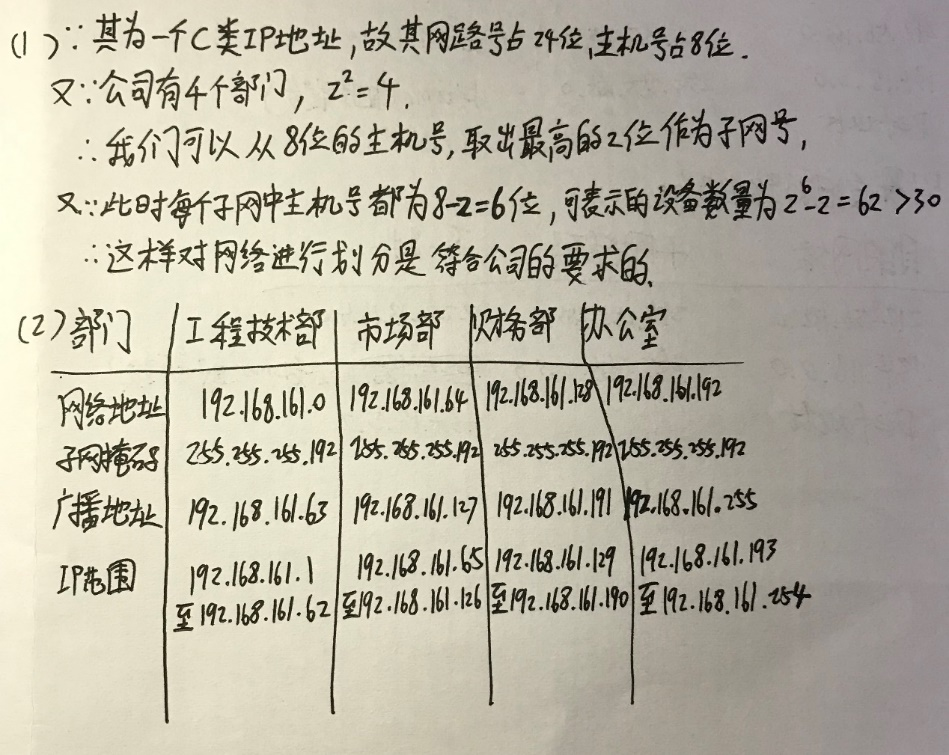 (1)∵其为一个C类IP地址,故其网路号占24位,主机号占8位.
又∵公司有4个部门, 2²=4.
∴我们可以从8位的主机号,取出最高的2位作为子网号,
又∵此时每个子网中主机号都为8-2=6位,可表示的设备数量为2⁶-2=62>30
∴这样对网络进行划分是符合公司的要求的.
(2)部门 工程技术部 市场部 财务部 办公室
网络地址 192.168.161.0 192.168.161.64 192.168.161.128 192.168.161.192
子网掩码 255.255.255.192 255.255.255.192 255.255.255.192 255.255.255.192
广播地址 192.168.161.63 192.168.161.127 192.168.161.191 192.168.161.255
IP范围 192.168.161.1 192.168.161.65 192.168.161.129 192.168.161.193
至192.168.161.62 至192.168.161.126 至192.168.161.190 至192.168.161.254